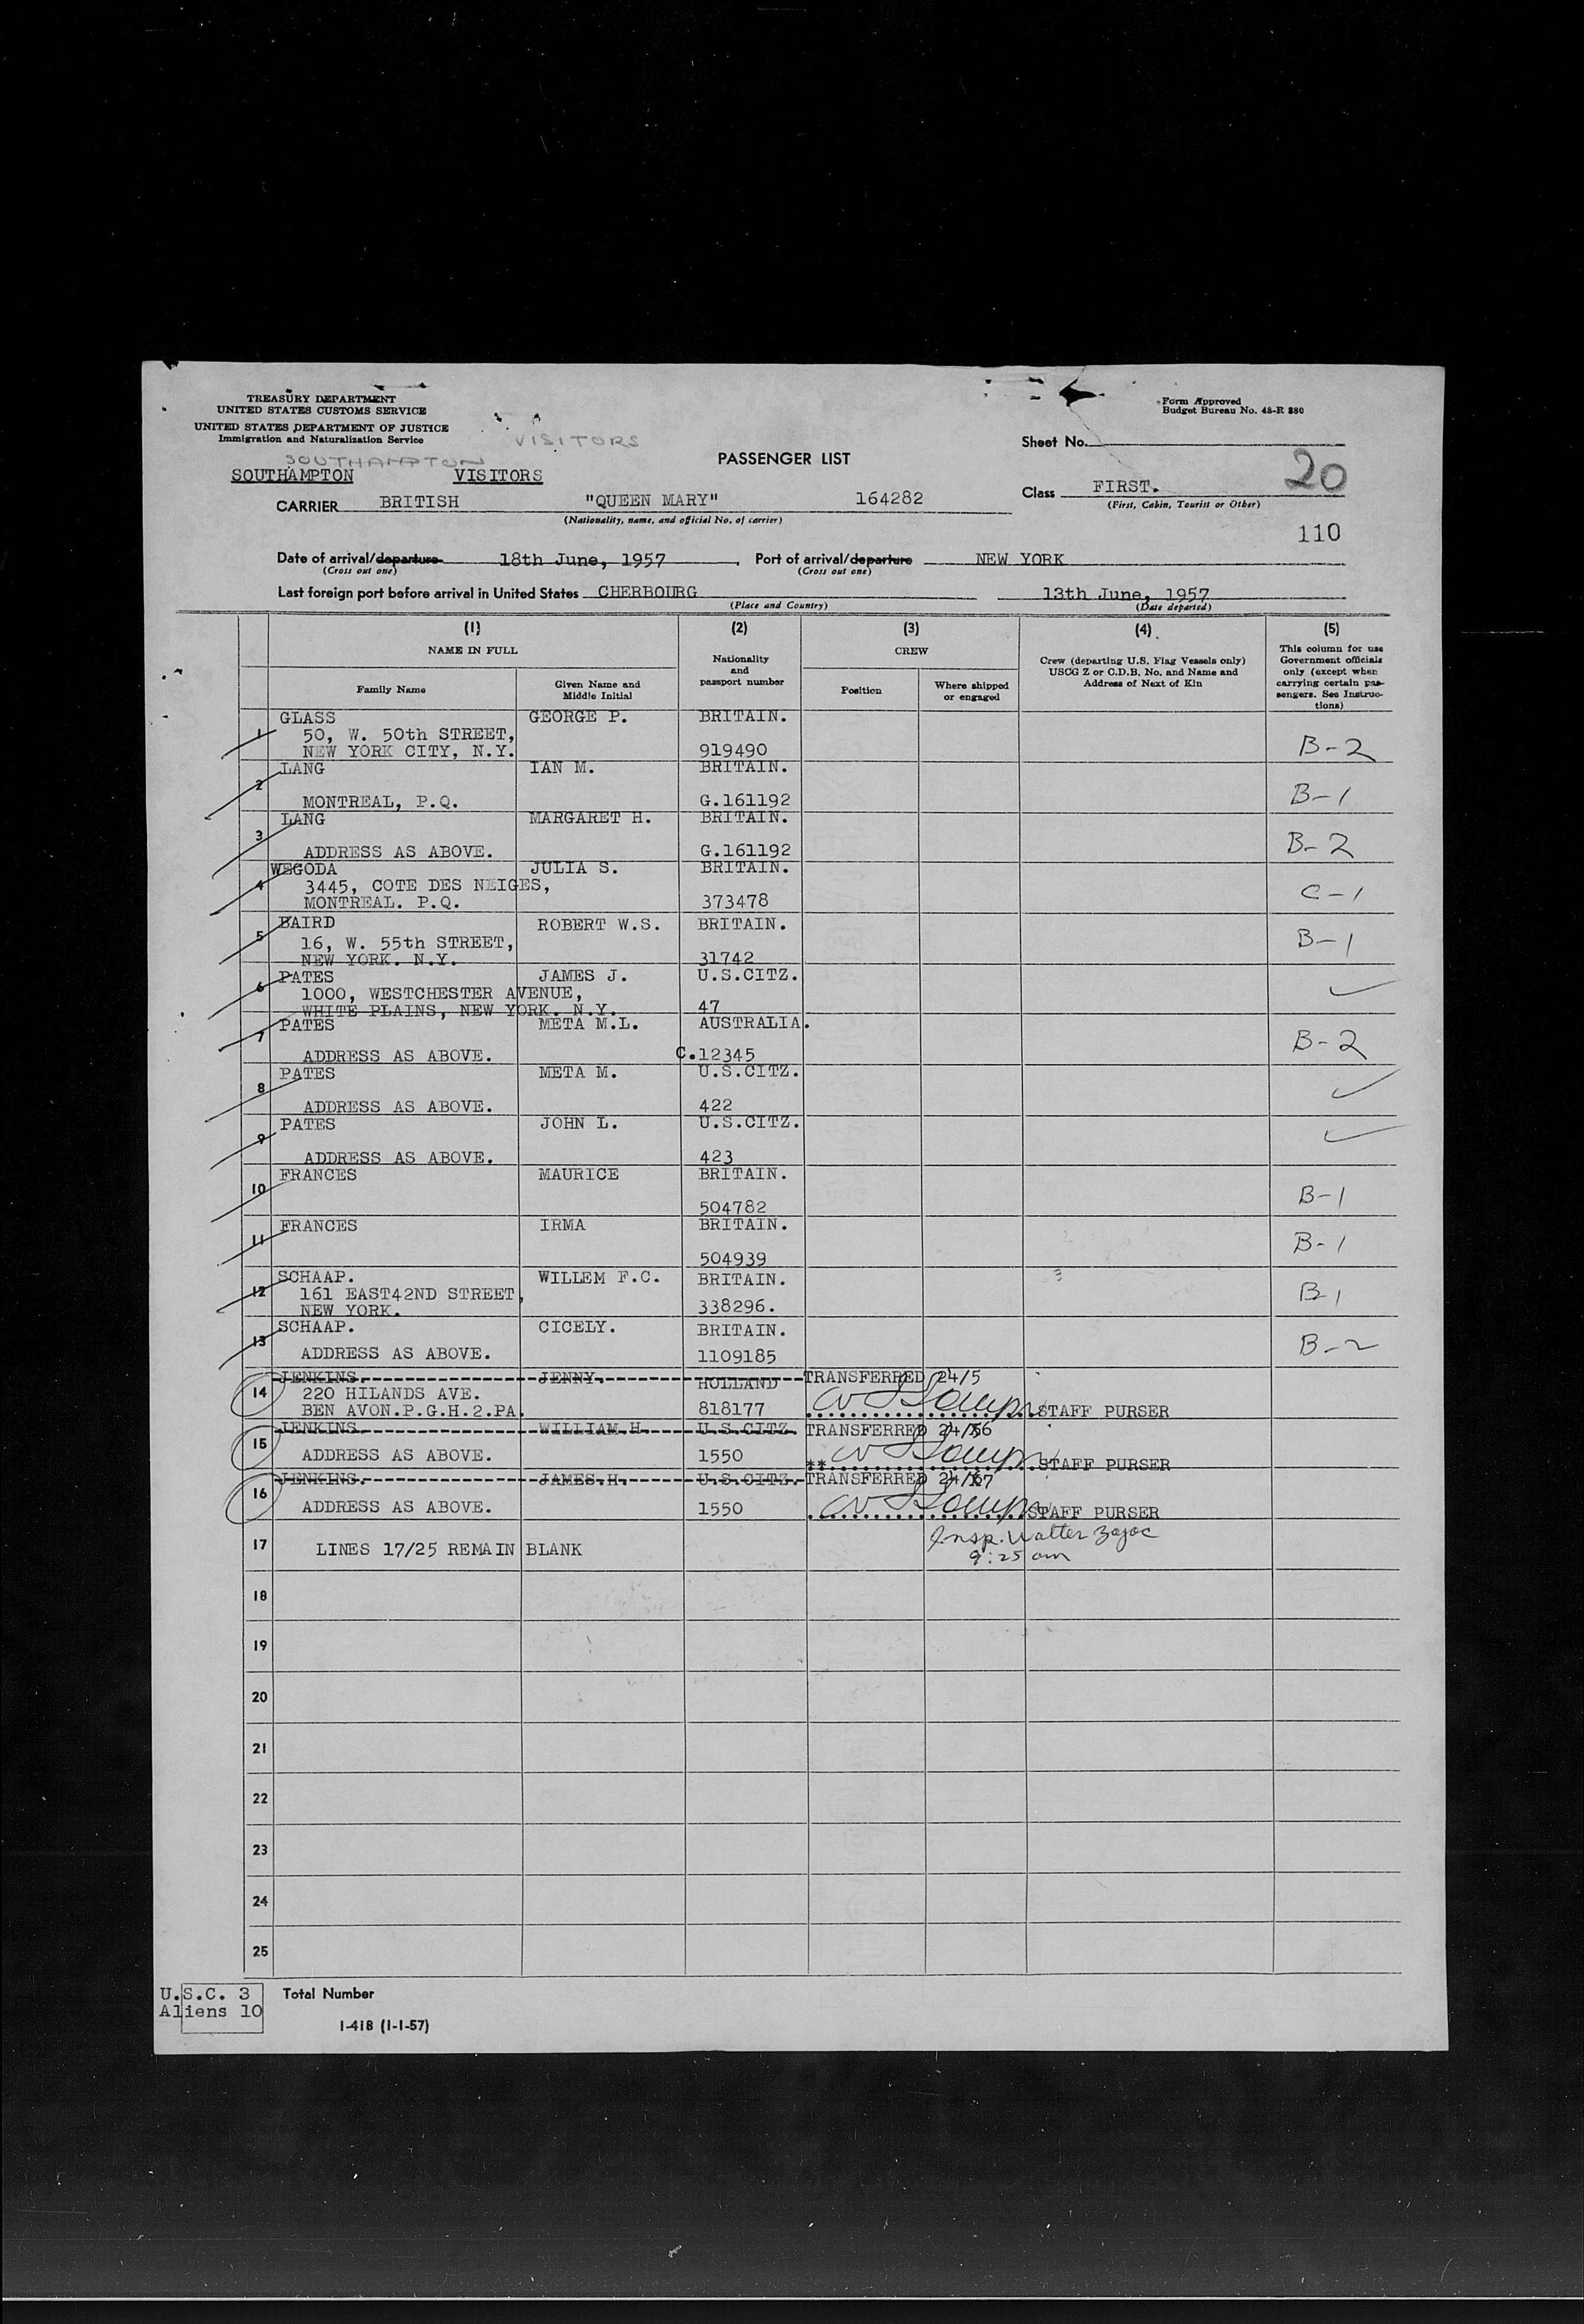 TREASURY DEPARTMENT
UNITED STATES CUSTOMS SERVICE
UNITED STATES DEPARTMENT OF JUSTICE
Immigration and Naturalization Service
Form Approved
Budget Bureau No. 48-R 880
VISITORS
SOUTHAMPTON
Sheet No.
PASSENGER LIST
20
SOUTHAMPTON VISITORS
CARRIER BRITISH "QUEEN MARY" 164282 Class FIRST.
(Nationality, name, and official No. of carrier) (First, Cabin, Tourist or Other)
110
Date of arrival/departure 18th June, 1957. Port of arrival/departure NEW YORK
(Cross out one) (Cross out one)
Last foreign port before arrival in United States CHERBOURG 13th June, 1957
(Place and Country) (Date departed)
(1) (2) (3) (4) (5)
NAME IN FULL
Nationality and passport number
CREW
Crew (departing U.S. Flag Vessels only) USCG Z or C.D.B. No. and Name and Address of Next of Kin
This column for use Government officials only (except when carrying certain passengers. See Instructions)
Family Name
Given Name and Middle Initial
Position
Where shipped or engaged
1 GLASS GEORGE P. BRITAIN.
50, W. 50th STREET,
NEW YORK CITY, N.Y. 919490 B-2
2 LANG IAN M. BRITAIN.
MONTREAL, P.Q. G.161192 B-1
3 LANG MARGARET H. BRITAIN.
ADDRESS AS ABOVE. G.161192 B-2
4 WEGODA JULIA S. BRITAIN.
3445, COTE DES NEIGES,
MONTREAL. P.Q. 373478 C-1
5 BAIRD ROBERT W.S. BRITAIN.
16, W. 55th STREET,
NEW YORK. N.Y. 31742 B-1
6 PATES JAMES J. U.S.CITZ.
1000, WESTCHESTER AVENUE,
WHITE PLAINS, NEW YORK. N.Y. 47
7 PATES META M.L. AUSTRALIA.
ADDRESS AS ABOVE. C.12345 B-2
8 PATES META M. U.S.CITZ.
ADDRESS AS ABOVE. 422
9 PATES JOHN L. U.S.CITZ.
ADDRESS AS ABOVE. 423
10 FRANCES MAURICE BRITAIN.
504782 B-1
11 FRANCES IRMA BRITAIN.
504939 B-1
12 SCHAAP. WILLEM F.C. BRITAIN.
161 EAST42ND STREET,
NEW YORK. 338296. B-1
13 SCHAAP. CICELY. BRITAIN.
ADDRESS AS ABOVE. 1109185 B-2
14 JENKINS. JENNY. HOLLAND TRANSFERRED 24/5
220 HILANDS AVE.
BEN AVON.P.G.H.2.PA. 818177 STAFF PURSER
15 JENKINS. WILLIAM H. U.S.CITZ. TRANSFERRED 24/6
ADDRESS AS ABOVE. 1550 ** STAFF PURSER
16 JENKINS. JAMES.H. U.S.CITZ. TRANSFERRED 24/7
ADDRESS AS ABOVE. 1550 STAFF PURSER
17 LINES 17/25 REMAIN BLANK
Insp. Walter Zajac
9:25 am
18
19
20
21
22
23
24
25
U.S.C. 3 Total Number
Aliens 10
I-418 (1-1-57)